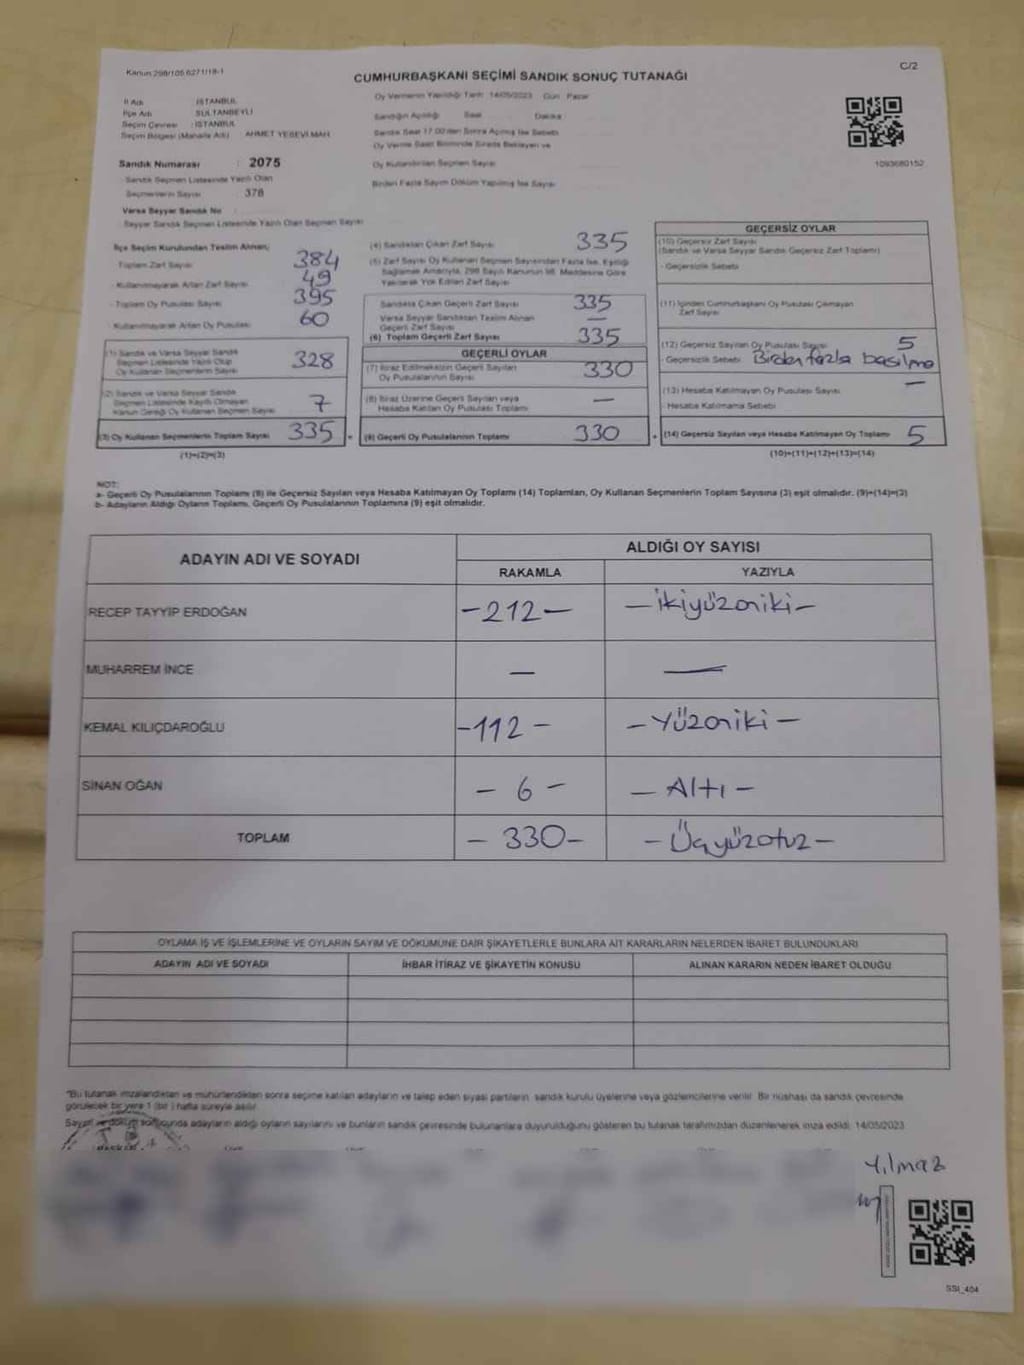 Kanun 298/105 6271/18-1
C/2
CUMHURBAŞKANI SEÇİMİ SANDIK SONUÇ TUTANAĞI
İl Adı : İSTANBUL
İlçe Adı : SULTANBEYLİ
Seçim Çevresi : İSTANBUL
Seçim Bölgesi (Mahalle Adı) : AHMET YESEVİ MAH.
Sandık Numarası : 2075
Sandık Seçmen Listesinde Yazılı Olan
Seçmenlerin Sayısı : 378
Varsa Seyyar Sandık No
Seyyar Sandık Seçmen Listesinde Yazılı Olan Seçmen Sayısı
Oy Vermenin Yapıldığı Tarih : 14/05/2023 Gün : Pazar
Sandığın Açıldığı Saat Dakika
Sandık Saat 17.00'den Sonra Açılmış İse Sebebi
Oy Verme Saati Bitiminde Sırada Bekleyen ve
Oy Kullandırılan Seçmen Sayısı
Birden Fazla Sayım Döküm Yapılmış İse Sayısı
1093680152
İlçe Seçim Kurulundan Teslim Alınan;
Toplam Zarf Sayısı 384
Kullanılmayarak Artan Zarf Sayısı 49
Toplam Oy Pusulası Sayısı 395
Kullanılmayarak Artan Oy Pusulası 60
(1) Sandık ve Varsa Seyyar Sandık
Seçmen Listesinde Yazılı Olup
Oy Kullanan Seçmenlerin Sayısı 328
(2) Sandık ve Varsa Seyyar Sandık
Seçmen Listesinde Kayıtlı Olmayan
Kanun Gereği Oy Kullanan Seçmen Sayısı 7
(3) Oy Kullanan Seçmenlerin Toplam Sayısı 335
(1)+(2)=(3)
(4) Sandıktan Çıkan Zarf Sayısı 335
(5) Zarf Sayısı Oy Kullanan Seçmen Sayısından Fazla İse, Eşitliği
Sağlamak Amacıyla, 298 Sayılı Kanunun 98. Maddesine Göre
Yakılarak Yok Edilen Zarf Sayısı
Sandıkta Çıkan Geçerli Zarf Sayısı 335
Varsa Seyyar Sandıktan Teslim Alınan
Geçerli Zarf Sayısı —
(6) Toplam Geçerli Zarf Sayısı 335
GEÇERLİ OYLAR
(7) İtiraz Edilmeksizin Geçerli Sayılan
Oy Pusulalarının Sayısı 330
(8) İtiraz Üzerine Geçerli Sayılan veya
Hesaba Katılan Oy Pusulaları Toplamı —
(9) Geçerli Oy Pusulalarının Toplamı 330
GEÇERSİZ OYLAR
(10) Geçersiz Zarf Sayısı
(Sandık ve Varsa Seyyar Sandık Geçersiz Zarf Toplamı)
- Geçersizlik Sebebi
(11) İçinden Cumhurbaşkanı Oy Pusulası Çıkmayan
Zarf Sayısı
(12) Geçersiz Sayılan Oy Pusulası Sayısı 5
- Geçersizlik Sebebi Birden fazla basılma
(13) Hesaba Katılmayan Oy Pusulası Sayısı —
- Hesaba Katılmama Sebebi
(14) Geçersiz Sayılan veya Hesaba Katılmayan Oy Toplamı 5
(10)+(11)+(12)+(13)=(14)
NOT:
a- Geçerli Oy Pusulalarının Toplamı (9) ile Geçersiz Sayılan veya Hesaba Katılmayan Oy Toplamı (14) Toplamları, Oy Kullanan Seçmenlerin Toplam Sayısına (3) eşit olmalıdır. (9)+(14)=(3)
b- Adayların Aldığı Oyların Toplamı, Geçerli Oy Pusulalarının Toplamına (9) eşit olmalıdır.
ADAYIN ADI VE SOYADI
ALDIĞI OY SAYISI
RAKAMLA YAZIYLA
RECEP TAYYİP ERDOĞAN -212- -İkiyüzoniki-
MUHARREM İNCE — —
KEMAL KILIÇDAROĞLU -112- -Yüzoniki-
SİNAN OĞAN -6- -Altı-
TOPLAM -330- -Üçyüzotuz-
OYLAMA İŞ VE İŞLEMLERİNE VE OYLARIN SAYIM VE DÖKÜMÜNE DAİR ŞİKAYETLERLE BUNLARA AİT KARARLARIN NELERDEN İBARET BULUNDUKLARI
ADAYIN ADI VE SOYADI İHBAR İTİRAZ VE ŞİKAYETİN KONUSU ALINAN KARARIN NEDEN İBARET OLDUĞU
*Bu tutanak imzalandıktan ve mühürlendikten sonra seçime katılan adayların ve talep eden siyasi partilerin sandık kurulu üyelerine veya gözlemcilerine verilir. Bir nüshası da sandık çevresinde
görülecek bir yere 1 (bir) hafta süreyle asılır.
Sayım ve döküm sonucunda adayların aldığı oyların sayılarını ve bunların sandık çevresinde bulunanlara duyurulduğunu gösteren bu tutanak tarafımızdan düzenlenerek imza edildi. 14/05/2023
Yılmaz
SSİ_404